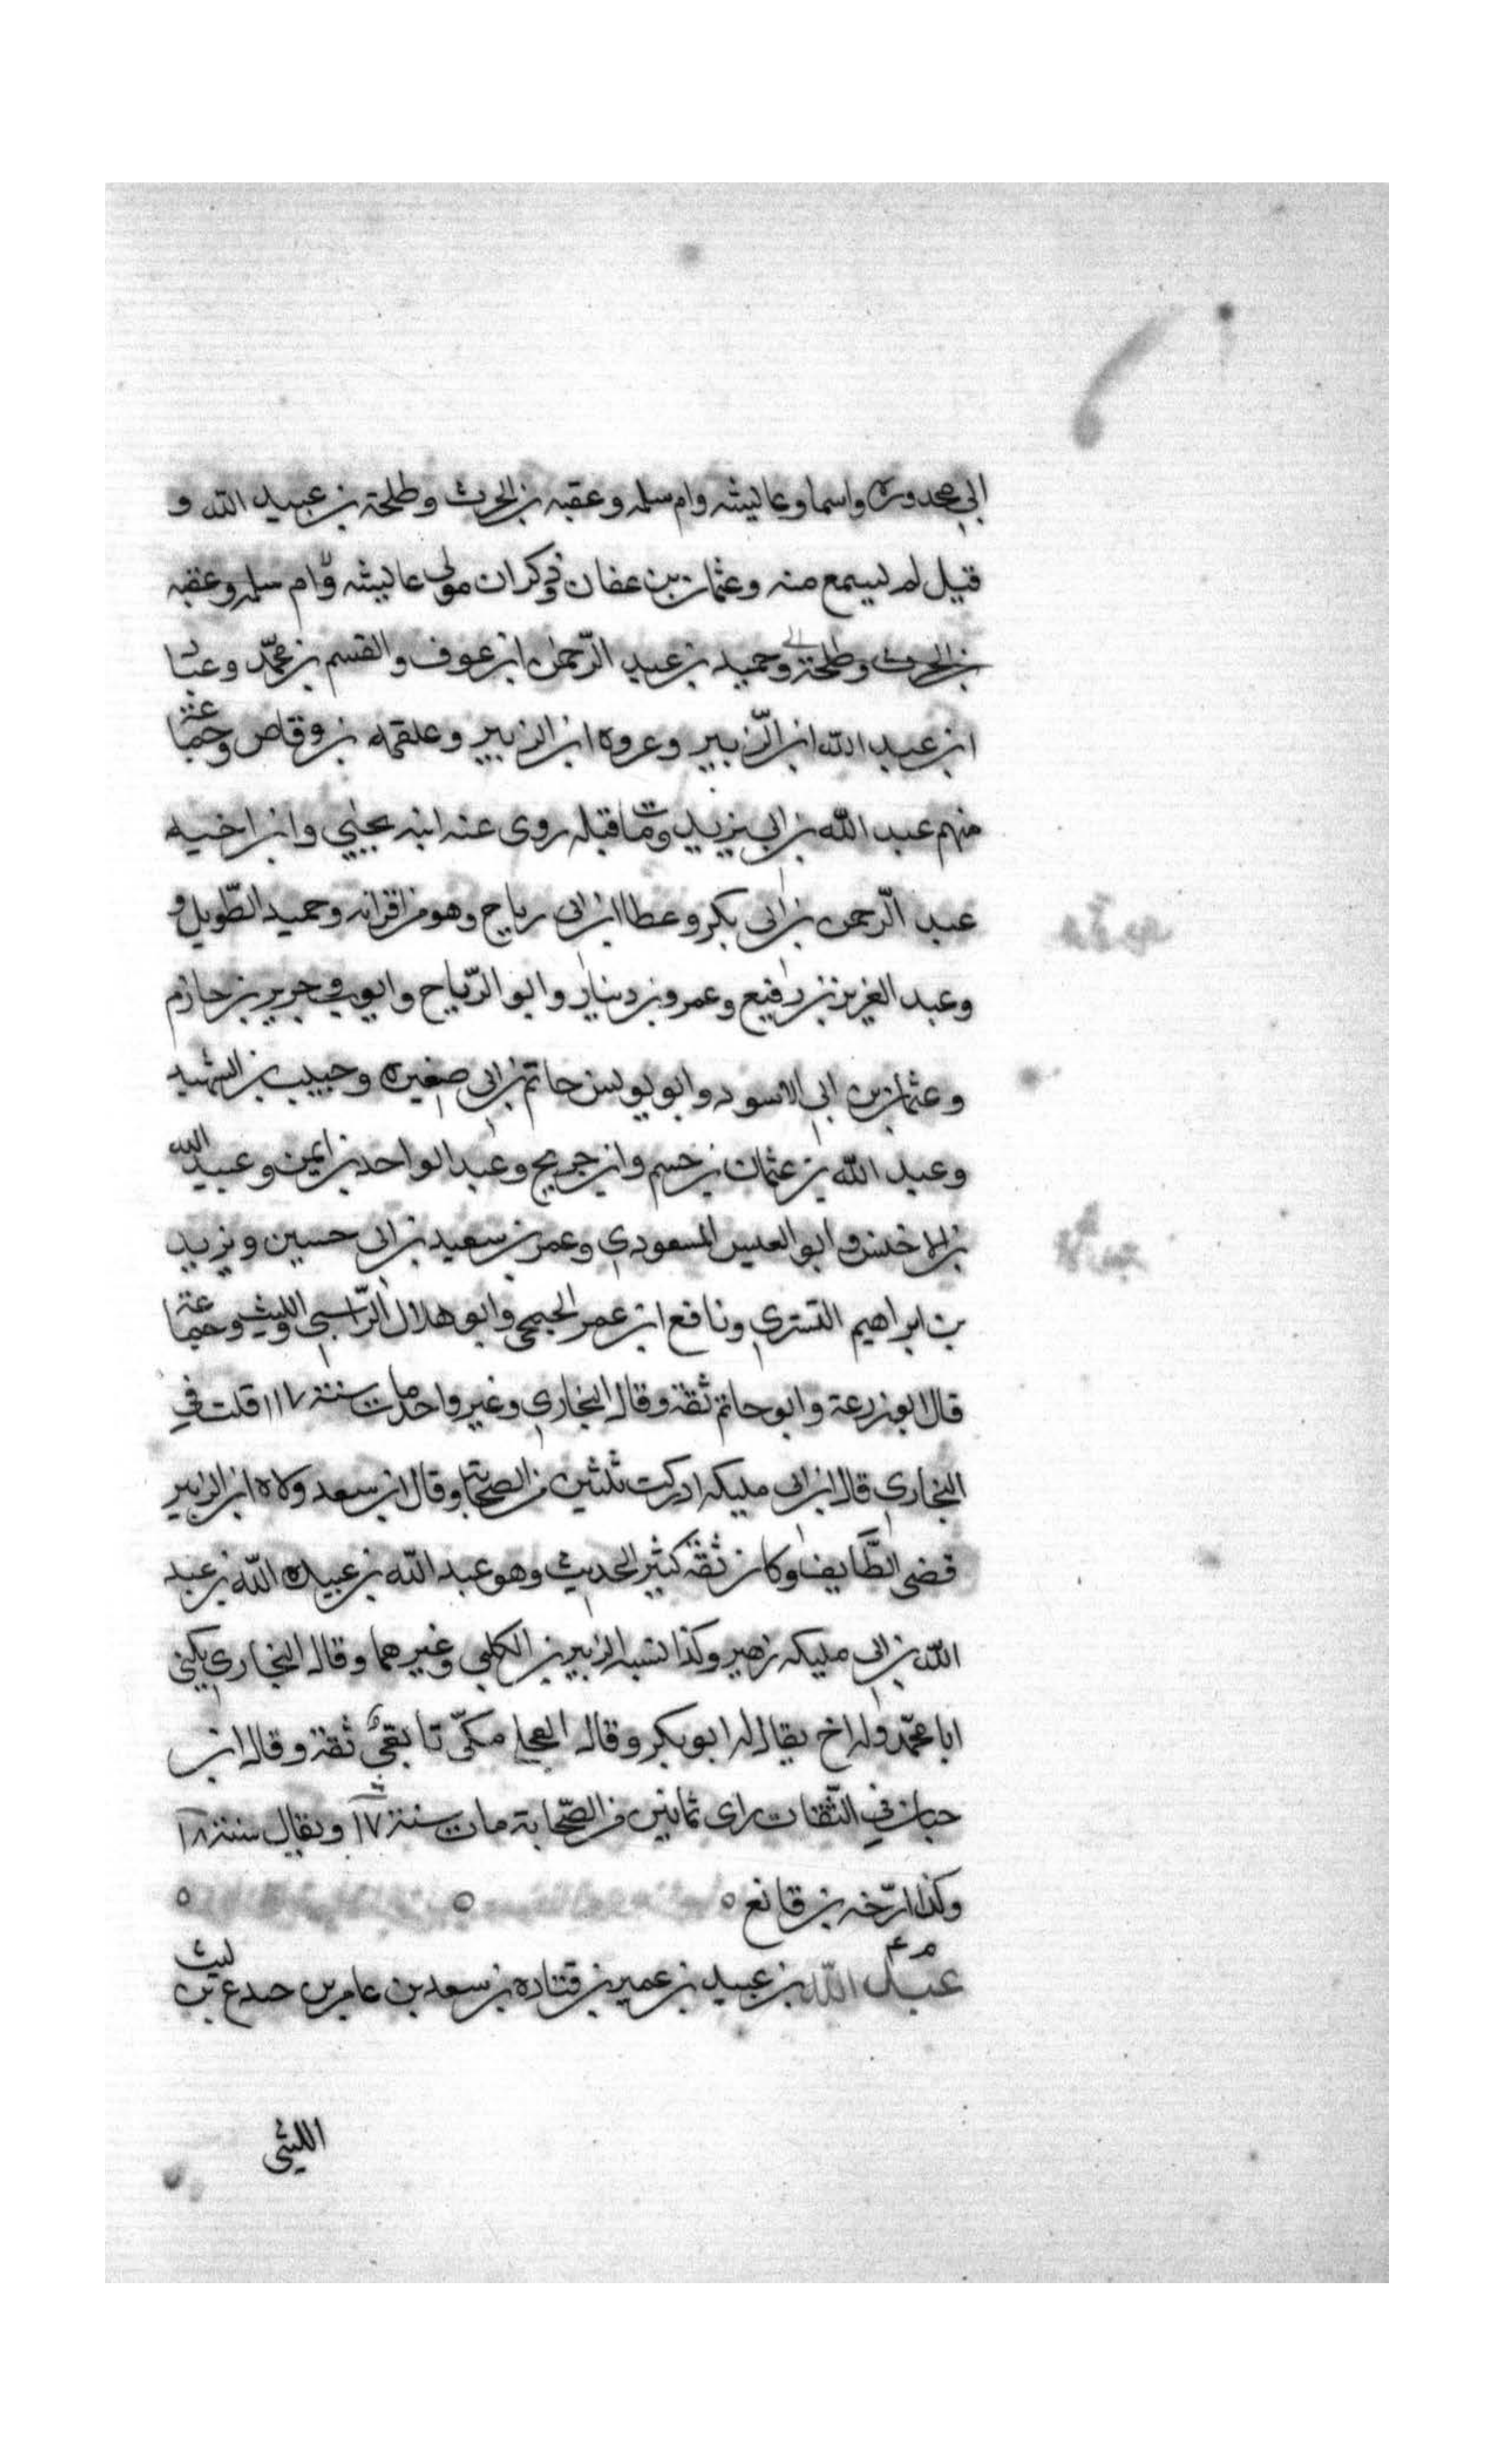 ابي محدوره واسما وعاليشه وام سلمه وعقبه بن الحرث وطلحة بن عبيد الله و
قيل لم ليسمع منه وعثمان بن عفان وذكران مولى عاليشه وام سلمه وعقبه
بن الحرث وطلحة وحميد بن عبد الرّحمن ابن عوف والقسم بن محمّد وعباد
ابن عبد الله ابن الزّبير وعروه ابن الزبير وعلقمه بن وقاص وجماعة
منهم عبد الله بن ابي يزيد ومات قبله روى عنه ابنه يحيى وابن اخيه
عبد الرّحمن بن ابى بكر وعطا ابن ابى رباح وهو من اقرانه وحميد الطّويل و
وعبد العزيز بن رفيع وعمرو بن دينار وابو الرّياح وايوب وجرير بن حازم
وعثمان بن ابي الاسود وابو يونس حاتم بن ابى صغيره وحبيب بن الشهيد
وعبد الله بن عثمان بن خسم وابن جريج وعبد الواحد بن ايمن وعبيد الله
بن الاخنس وابو العميس المسعودي وعمر بن سعيد بن ابى حسين ويزيد
بن ابراهيم التستري ونافع ابن عمر الجمحي وابو هلال الرّاسبى والليث وجماعة
قال ابو زرعة وابو حاتم ثقة وقال البخاري وغير واحد مات سنة ١١٧ قلت في
البخاري قال ابن ابى مليكه ادركت ثلثين من الصحابة وقال ابن سعد ولاه ابن الزبير
قضى الطّايف وكان ثقة كثير الحديث وهو عبد الله بن عبيده الله بن عبد
الله بن ابى مليكه زهير وكذا نسبه الزبير بن الكلبي وغيرهما وقال البخاري يكنى
ابا محمّد وله اخ يقال له ابو بكر وقال العجلى مكّى تابعى ثقة وقال ابن
حبان في الثّقات راى ثمانين من الصّحابة مات سنة ١٧ ويقال سنة ١٨
وكذا ارّخه بن قانع
م ع
عبد الله بن عبيد بن عمير بن قتاده بن سعد بن عامر بن جندع بن ليث
الليثى